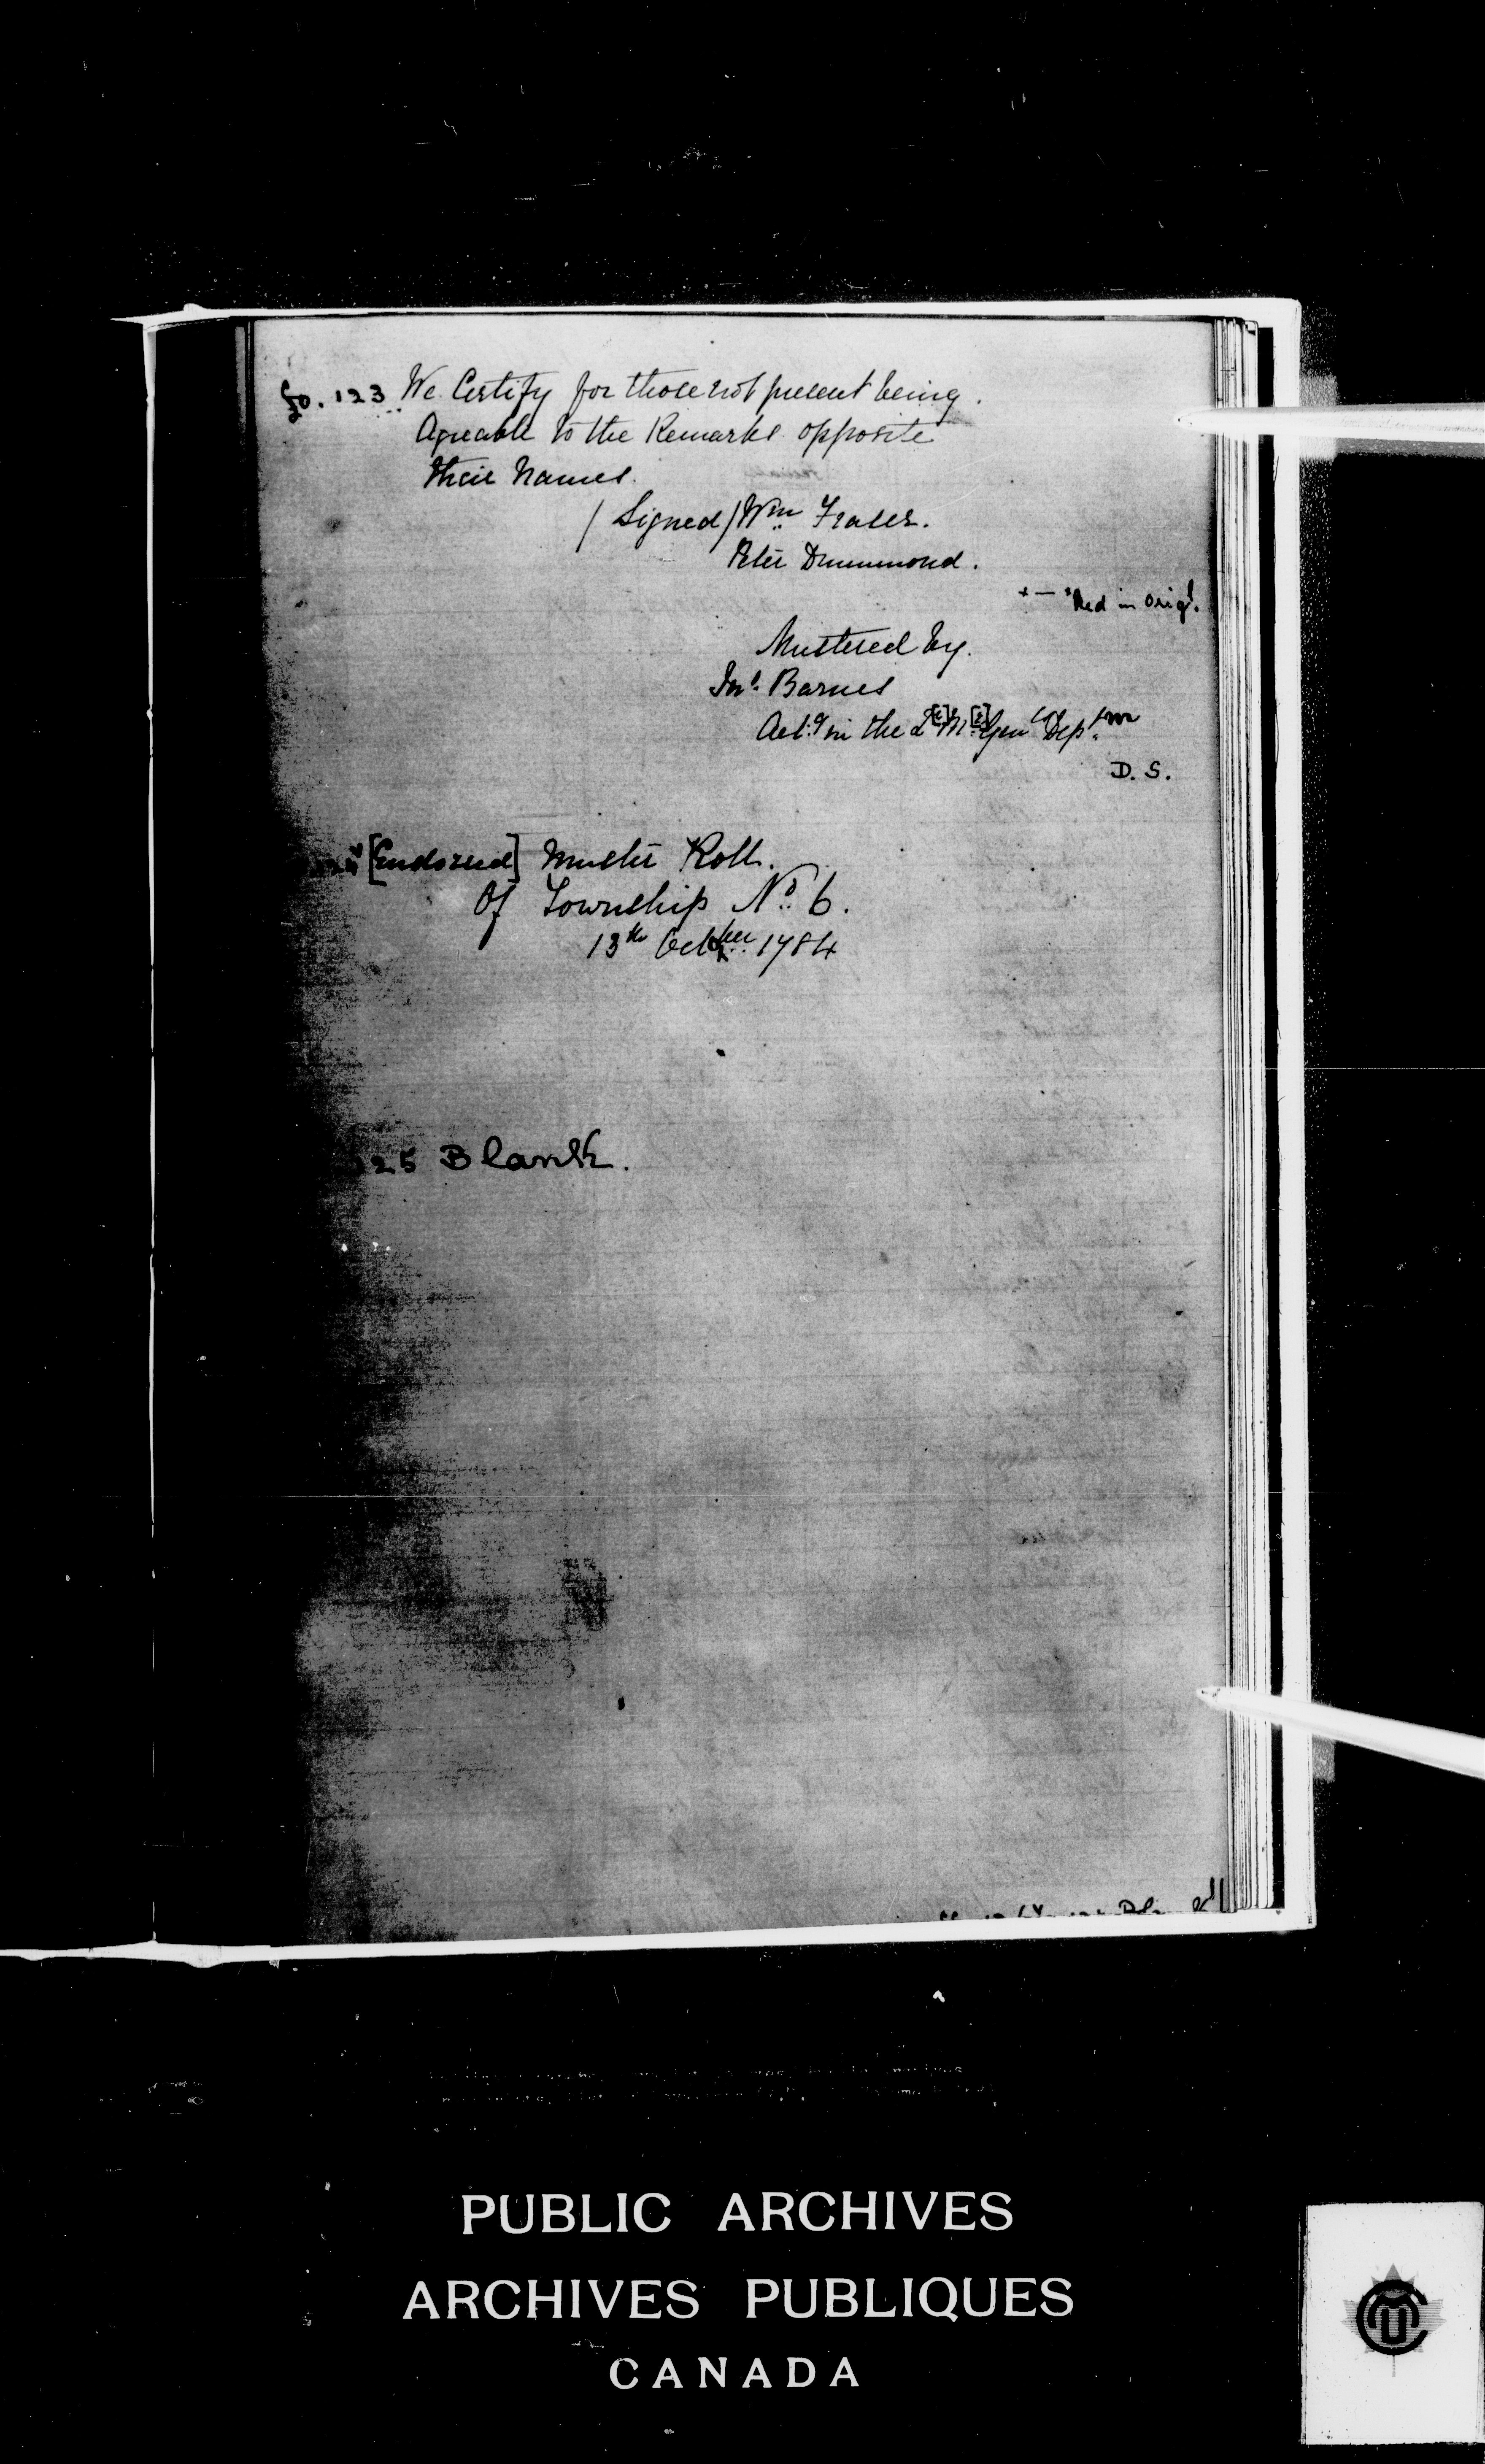 fo. 123 We Certify for those not present being
Agreable to the Remarks opposite
their Names.
/ Signed / Wm Fraser.
Peter Drummond.
+ — "Red in Orig!.
Mustered by.
Jno. Barnes
Act.g in the Gen Dept.
D. S.
[Endorsed] Muster Roll.
Of Township No. 6.
13th October 1784
25 Blank.
PUBLIC ARCHIVES
ARCHIVES PUBLIQUES
CANADA